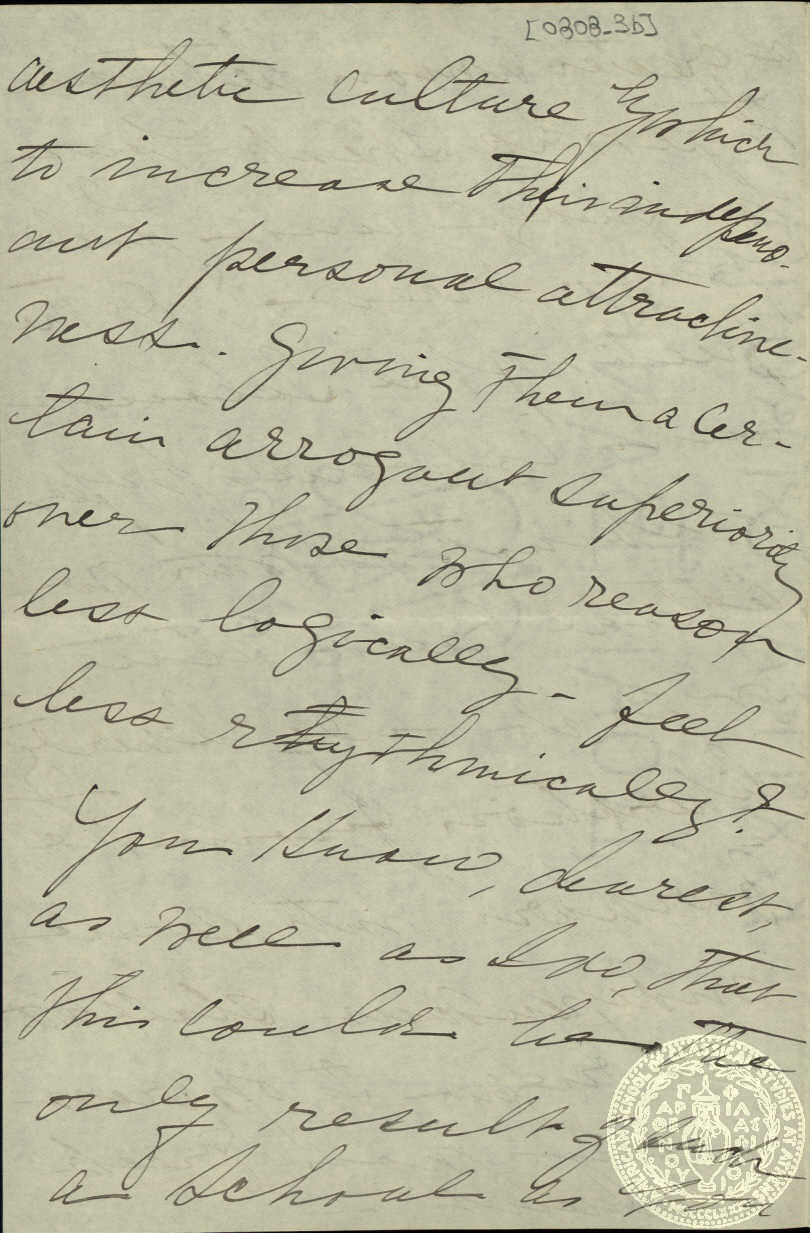 [0303-3b]
aesthetic culture by which
to increase their independ-
ant personal attractive-
ness. Giving them a cer-
tain arrogant superiority
over those who reason
less logically - feel
less rhythmically?
You know, dearest,
as well as I do, that
this could be the
only result of such
a school as you
AMERICAN SCHOOL OF CLASSICAL STUDIES AT ATHENS